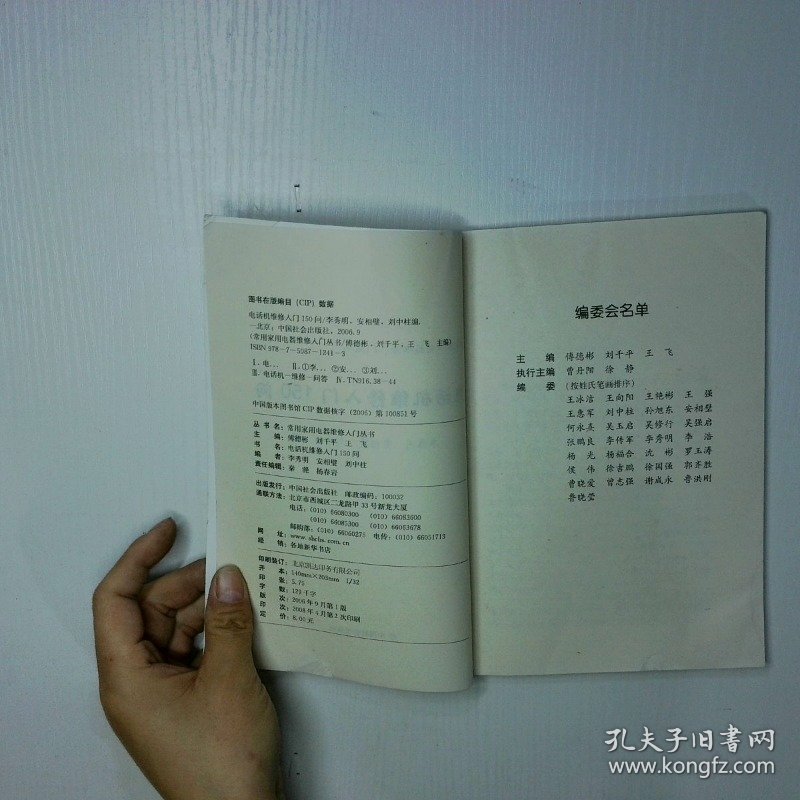 图书在版编目（CIP）数据
电话机维修入门150问/李秀明，安相璧，刘中柱编.
—北京：中国社会出版社，2006.9
（常用家用电器维修入门丛书/傅德彬，刘千平，王飞主编）
ISBN 978-7-5087-1241-3
Ⅰ.电… Ⅱ.①李… ②安… ③刘…
Ⅲ.电话机—维修—问答 Ⅳ.TN916.38-44
中国版本图书馆CIP数据核字（2006）第100851号
丛书名：常用家用电器维修入门丛书
主编：傅德彬 刘千平 王飞
书名：电话机维修入门150问
编者：李秀明 安相璧 刘中柱
责任编辑：秦 杨春云
出版发行：中国社会出版社 邮政编码：100032
通联方法：北京市西城区二龙路甲33号新龙大厦
电话：（010）66080300 （010）66083600
（010）66085300 （010）66063678
邮购部：（010）66060275 电传：（010）66051713
网址：www.shcbs.com.cn
经销：各地新华书店
印刷装订：北京凯达印务有限公司
开本：140mm×203mm 1/32
印张：5.75
字数：123千字
版次：2006年9月第1版
印次：2008年4月第2次印刷
定价：8.00元
编委会名单
主编 傅德彬 刘千平 王飞
执行主编 曹丹阳 徐静
编委（按姓氏笔画排序）
王冰洁 王向阳 王艳彬 王强
王惠军 刘中柱 孙旭东 安相璧
何永熹 吴玉启 吴修行 吴强启
张鹏良 李传军 李秀明 李浩
杨光 杨福合 沈彬 罗玉涛
侯伟 徐吉鹏 徐国强 郭齐胜
曹晓爱 曾志强 谢成永 鲁洪刚
鲁晓莹
孔夫子旧书网
www.kongfz.com